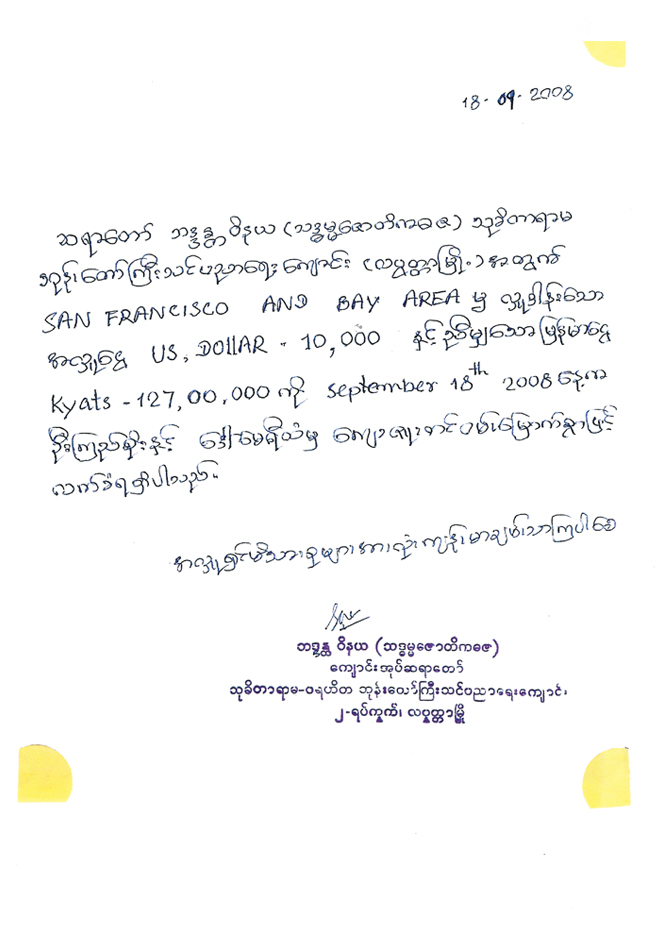 18-09-2008
ဆရာတော် ဘဒ္ဒန္တ ဝိနယ (သဒ္ဓမ္မဇောတိကဓဇ) သုခိတာရာမ
ဘုန်းတော်ကြီးသင်ပညာရေးကျောင်း (လပွတ္တာမြို့) အတွက်
SAN FRANCISCO AND BAY AREA မှ လှူဒါန်းသော
အလှူငွေ US, DOllAR - 10,000 နှင့် ညီမျှသော မြန်မာငွေ
Kyats - 127,00,000 ကို september 18th 2008 နေ့က
ဦးကြည်စိုးနှင့် ဒေါ်မေရီထံမှ ကျေးဇူးတင်ဝမ်းမြောက်စွာဖြင့်
လက်ခံရရှိပါသည်။
အလှူရှင်မိသားစုများအားလုံးကျန်းမာချမ်းသာကြပါစေ
ဘဒ္ဒန္တ ဝိနယ (သဒ္ဓမ္မဇောတိကဓဇ)
ကျောင်းအုပ်ဆရာတော်
သုခိတာရာမ-ပရဟိတ ဘုန်းတော်ကြီးသင်ပညာရေးကျောင်း၊
၂-ရပ်ကွက်၊ လပွတ္တာမြို့